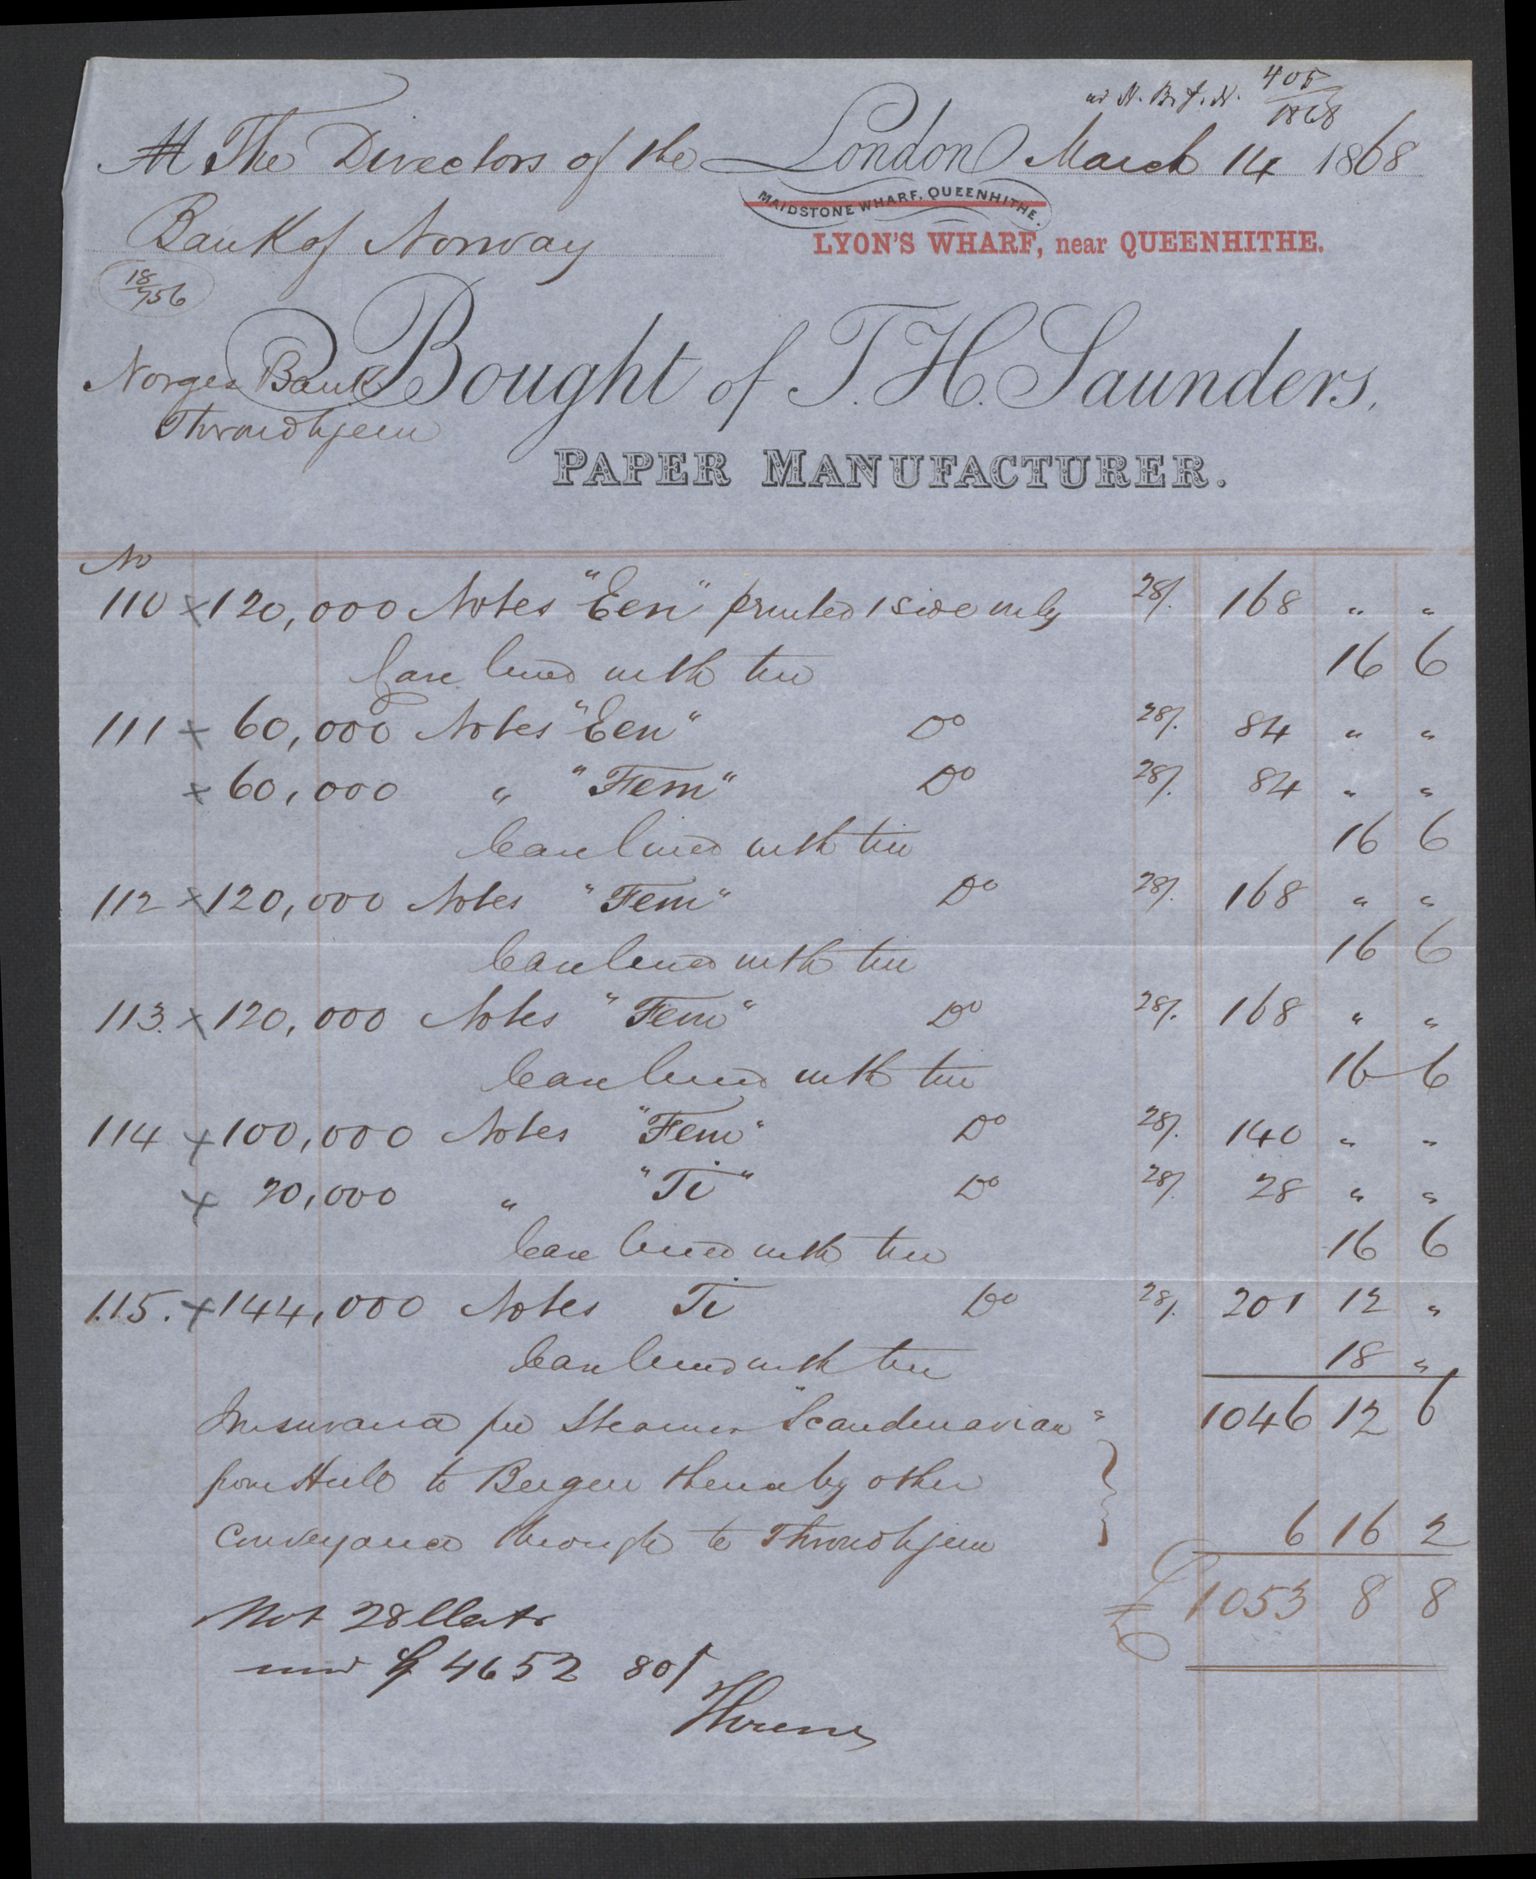 ad N. B. J. N. 405/1868
M The Directors of the London March 14 1868
MAIDSTONE WHARF, QUEENHITHE.
Bank of Norway
LYON'S WHARF, near QUEENHITHE.
18/756
Bought of T. H. Saunders,
Norges Bank
Throndhjem
PAPER MANUFACTURER.
No
110 x 120,000 Notes "Een" printed 1 side only 28/. 168 " "
Case lined with tin 16 6
111 x 60,000 Notes "Een" Do 28/. 84 " "
x 60,000 " "Fem" Do 28/. 84 " "
Case lined with tin 16 6
112 x 120,000 Notes "Fem" Do 28/. 168 " "
Case lined with tin 16 6
113. x 120,000 Notes "Fem" Do 28/. 168 " "
Case lined with tin 16 6
114 x 100,000 Notes "Fem" Do 28/. 140 " "
x 20,000 " "Ti" Do 28/. 28 " "
Case lined with tin 16 6
115. x 144,000 Notes Ti Do 28/. 201 12 "
Case lined with tin 18 "
Insurance per Steamer "Scandinavian" 1046 12 6
from Hull to Bergen thence by other
conveyance through to Throndhjem 6 16 2
£ 1053 8 8
Not 28
4652 80